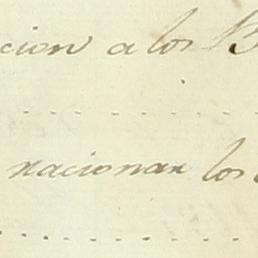 cion a los B
nacionan los